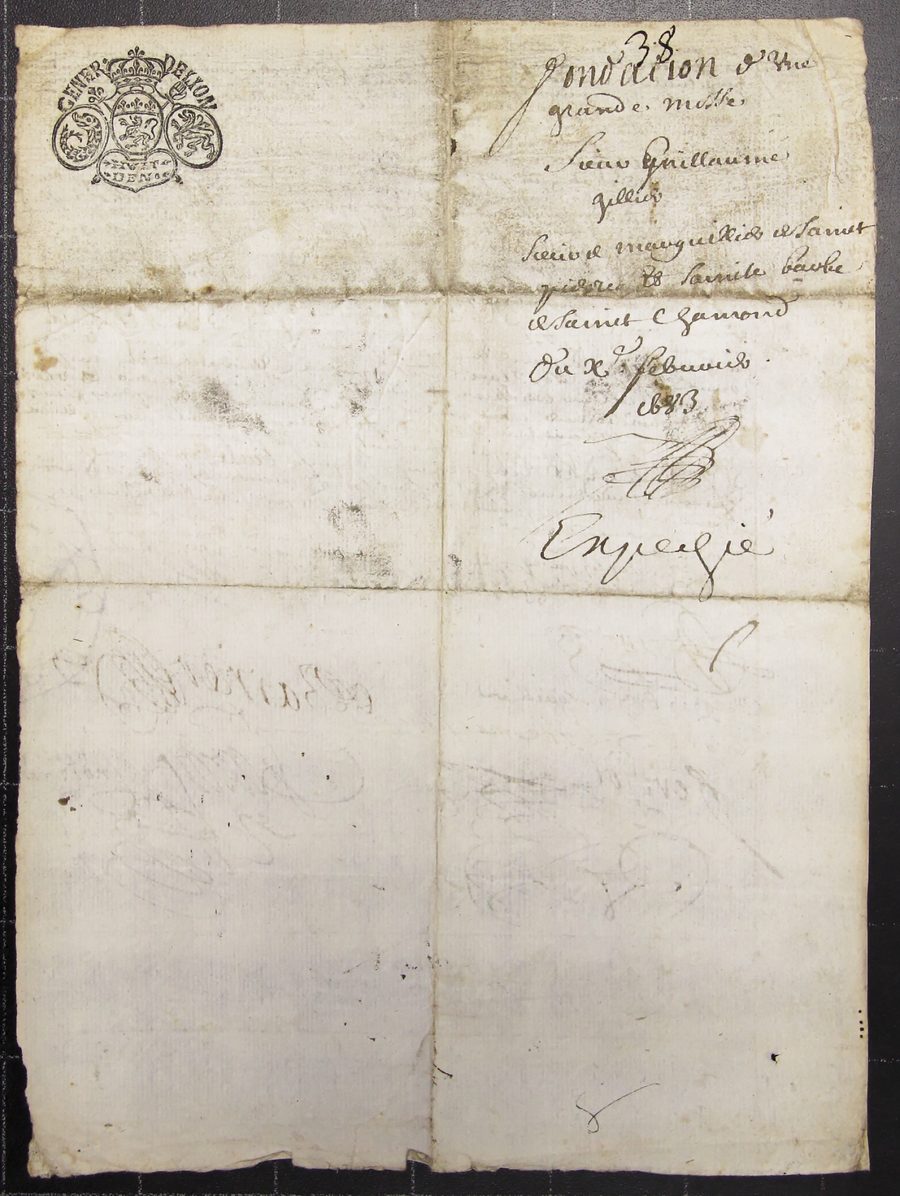 GENER· DE LYON
HVIT
DEN·
38
fondacion d vne
grande messe
Sieur Guillaume
gillier
Sieurs marguilliers de Sainct
pierre et Saincte barbe
de Sainct Chamond
du Xe febvrier
1683
Expedié